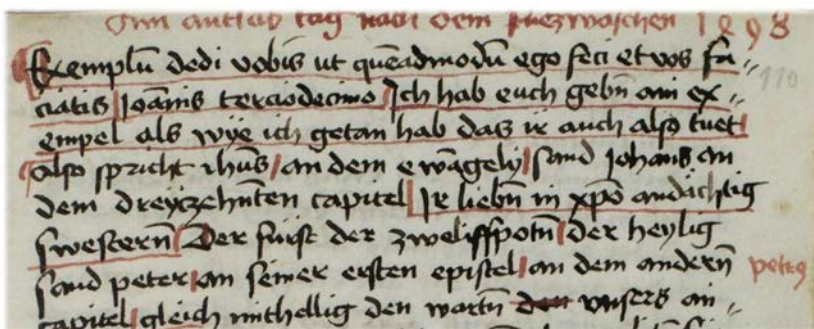 Am antlas tag nach dem fuezwaschen 1498
Exemplu̅ dedi vobis ut que̅admodu̅ ego feci et vos fa„
ciatis Joa̅nis terciodecimo Ich hab euch gebn̅ ain ex„
empel als wye ich getan hab das ir auch also tuet
also spricht ihūs an dem ewa̅gely sand Johans an
dem dreyzehn̅ten capitel Ir liebn̅ in xp̅o andächtig
swestern̅ Der fürst der zweliffpotn̅ der heylig
sand peter an seiner ersten epistel an dem andern̅ petr9
capitel gleich mithellig den wartn̅ unsers ain„